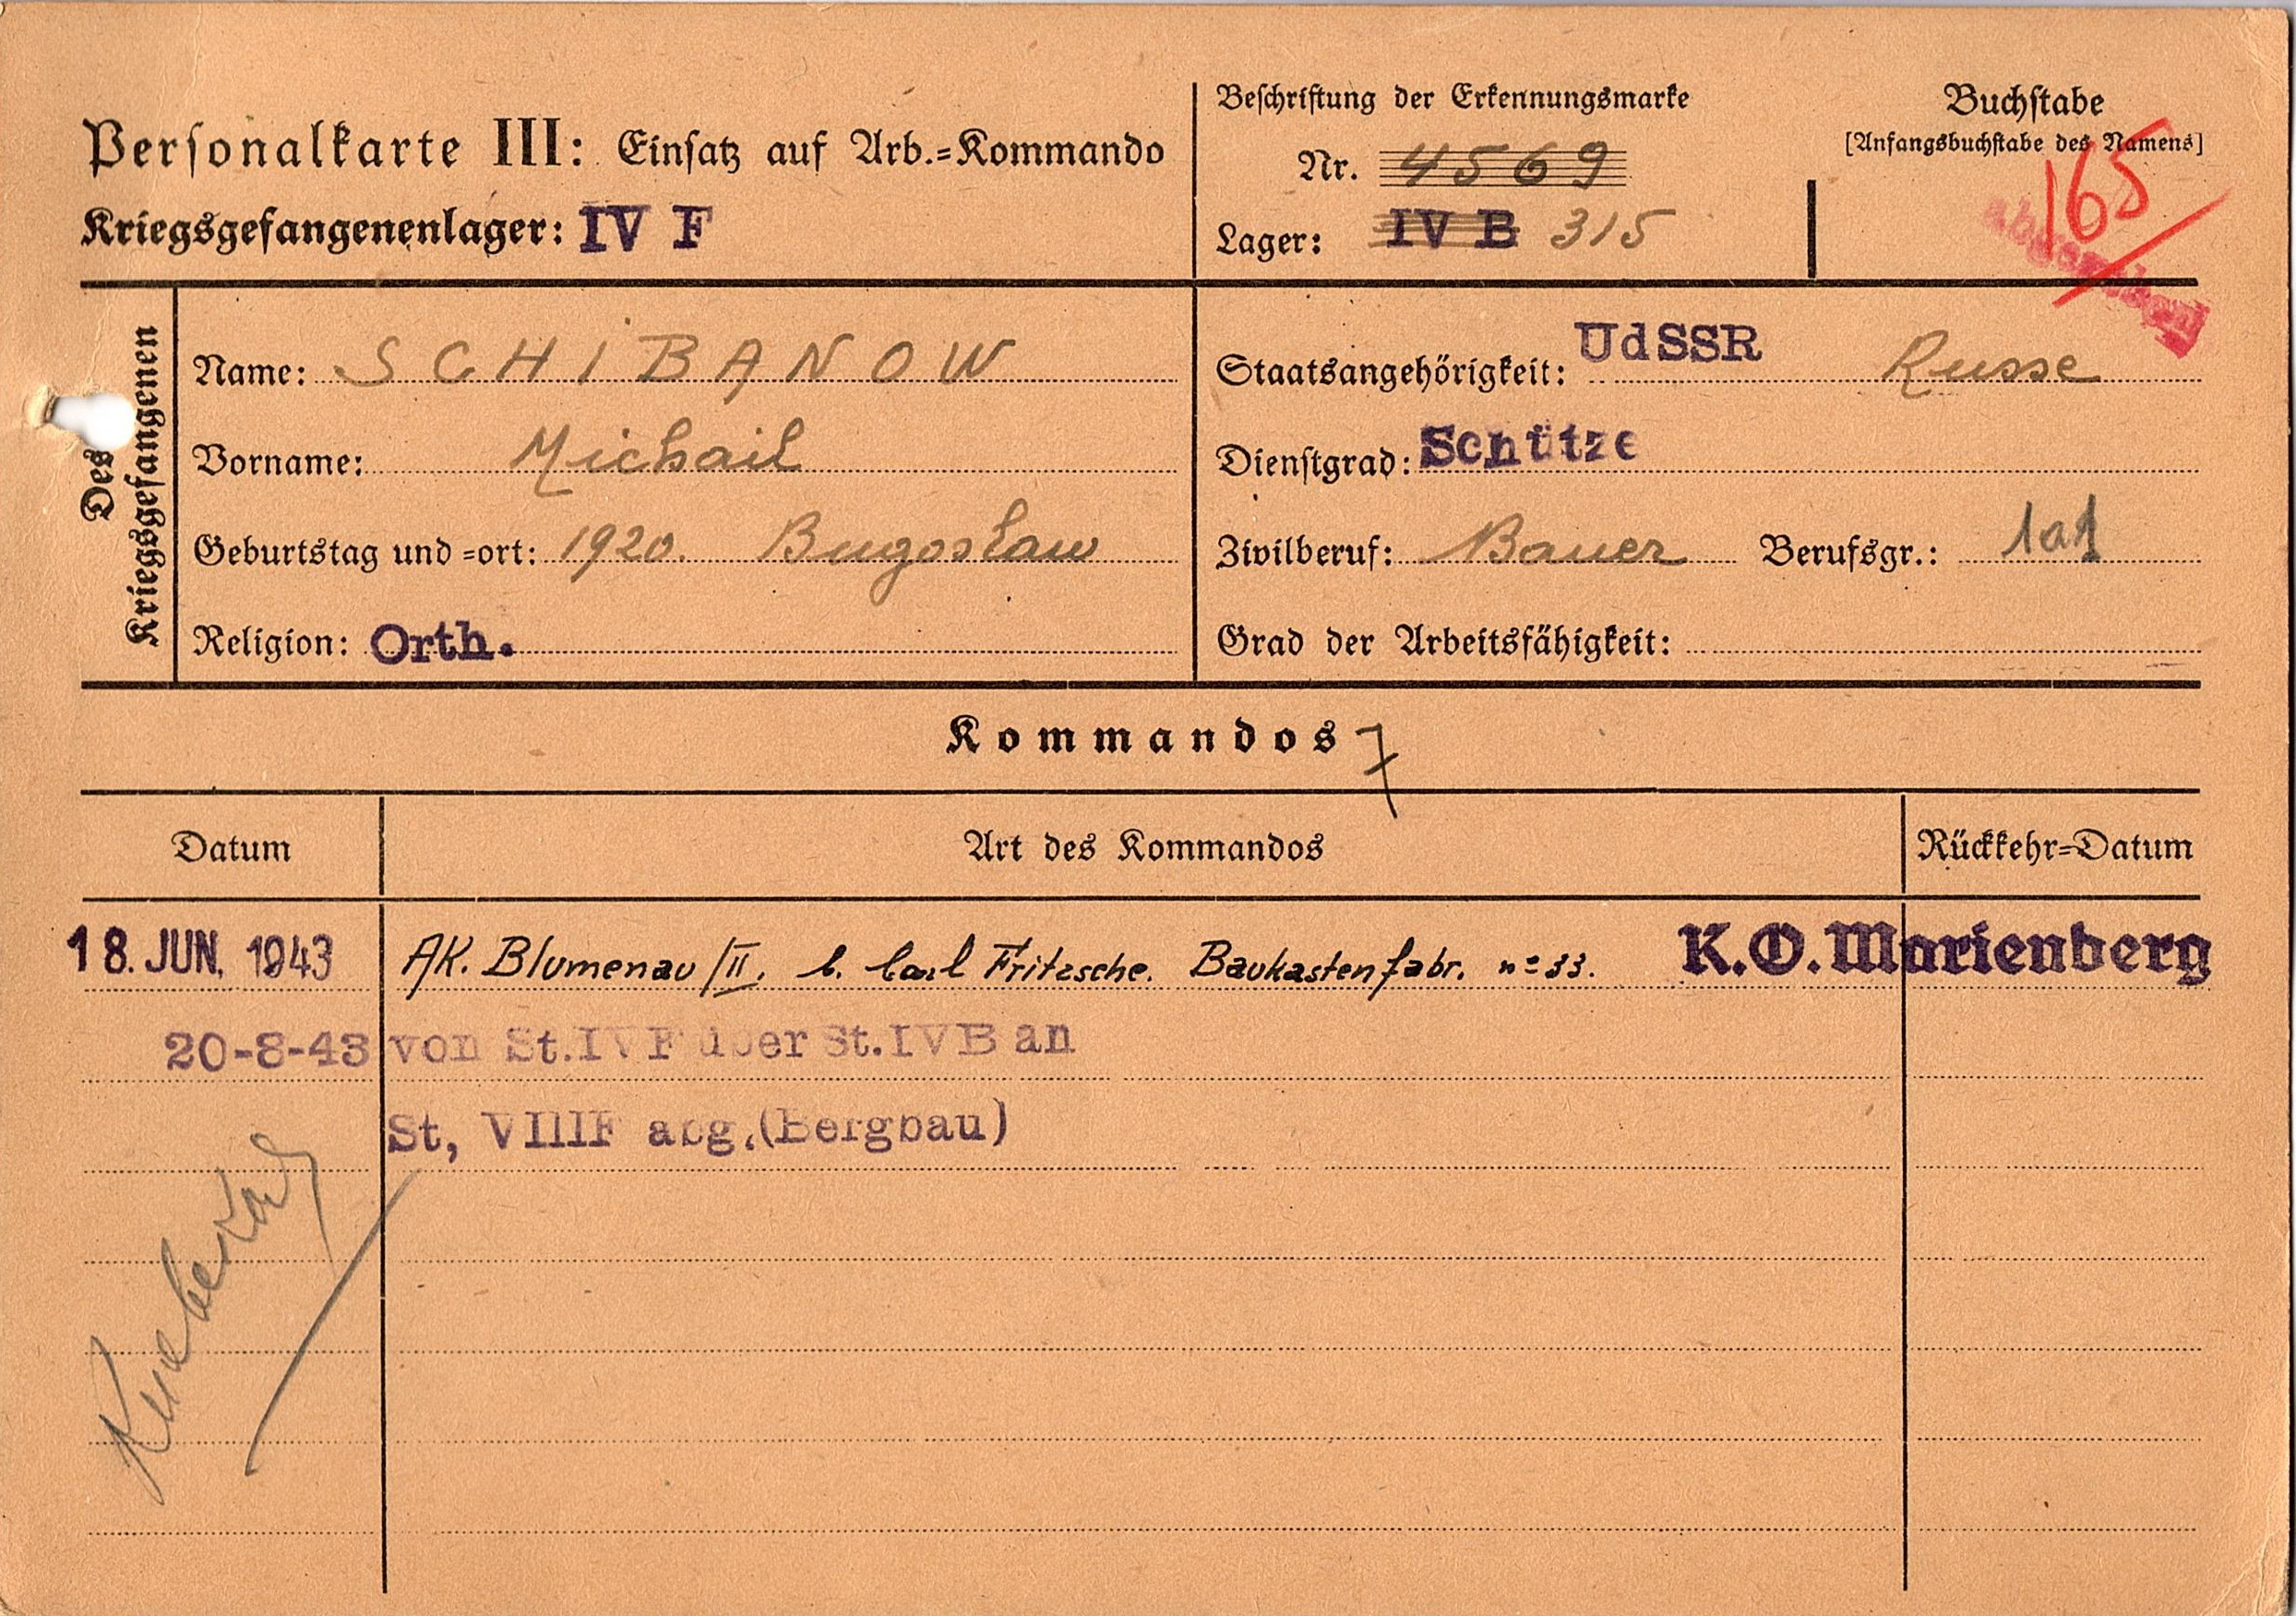 Personalkarte III: Einsatz auf Arb.=Kommando
Kriegsgefangenenlager: IV F
Beschriftung der Erkennungsmarke
Nr. 4569
Lager: IV B 315
Buchstabe
[Anfangsbuchstabe des Namens]
165
Des Kriegsgefangenen
Name: SCHIBANOW
Vorname: Michail
Geburtstag und =ort: 1920. Bugoslaw
Religion: Orth.
Staatsangehörigkeit: UdSSR Russe
Dienstgrad: Schütze
Zivilberuf: Bauer Berufsgr.: 1a1
Grad der Arbeitsfähigkeit:
Kommandos 7
Datum Art des Kommandos Rückkehr=Datum
18. JUN. 1943 AK. Blumenau/II. b. Carl Fritzsche. Baukastenfabr. nº 33. K.O. Marienberg
20-8-43 von St.IV F über St.IVB an
St, VIIIF abg.(Bergbau)